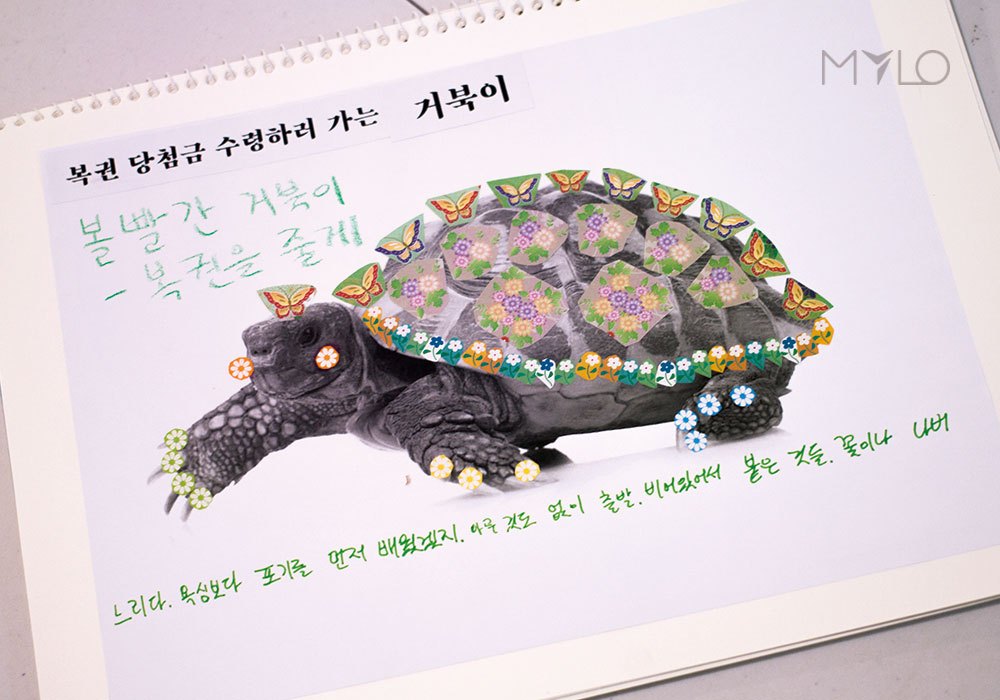 MYLO
복권 당첨금 수령하러 가는 거북이
볼빨간 거북이
- 복권을 줄게
느리다. 욕심보다 포기를 먼저 배웠겠지. 아무것도 없이 출발. 비어있어서 붙은 것들. 꽃이나 나비